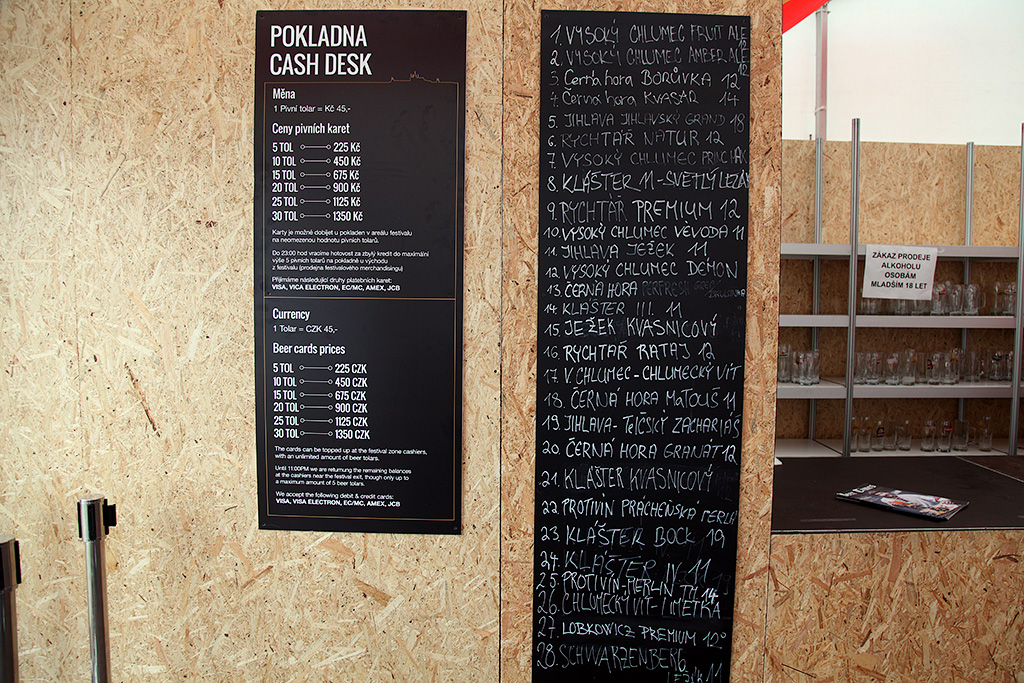 POKLADNA
CASH DESK
Měna
1 Pivní tolar = Kč 45,-
Ceny pivních karet
5 TOL 225 Kč
10 TOL 450 Kč
15 TOL 675 Kč
20 TOL 900 Kč
25 TOL 1125 Kč
30 TOL 1350 Kč
Karty je možné dobíjet u pokladen v areálu festivalu
na neomezenou hodnotu pivních tolarů.
Do 23:00 hod vracíme hotovost za zbylý kredit do maximální
výše 5 pivních tolarů na pokladně u východu
z festivalu (prodejna festivalového merchandisingu)
Přijímáme následující druhy platebních karet:
VISA, VICA ELECTRON, EC/MC, AMEX, JCB
Currency
1 Tolar = CZK 45,-
Beer cards prices
5 TOL 225 CZK
10 TOL 450 CZK
15 TOL 675 CZK
20 TOL 900 CZK
25 TOL 1125 CZK
30 TOL 1350 CZK
The cards can be topped up at the festival zone cashiers,
with an unlimited amount of beer tolars.
Until 11:00PM we are returnung the remaining balances
at the cashiers near the festival exit, though only up to
a maximum amount of 5 beer tolars.
We accept the following debit & credit cards:
VISA, VISA ELECTRON, EC/MC, AMEX, JCB
1. VYSOKÝ CHLUMEC FRUIT ALE
12
2. VYSOKÝ CHLUMEC AMBER ALE
12
3. Černá hora BORŮVKA 12
4. Černá hora KVASAR 14
5. JIHLAVA JIHLAVSKÝ GRAND 18
6. RYCHTÁŘ NATUR 12
7. VYSOKÝ CHLUMEC PRINC HAK
8. KLÁŠTER 11-SVĚTLÝ LEŽÁK
9. RYCHTÁŘ PREMIUM 12
10. VYSOKÝ CHLUMEC VÉVODA 11
11. JIHLAVA JEŽEK 11
12. VYSOKÝ CHLUMEC DÉMON
13. ČERNÁ HORA
14. KLÁŠTER III. 11
15. JEŽEK KVASNICOVÝ
16. RYCHTÁŘ RATAJ 12
17. V. CHLUMEC - CHLUMECKÝ VÍT
18. ČERNÁ HORA MATOUŠ 11
19. JIHLAVA - TELČSKÝ ZACHARIÁŠ
20. ČERNÁ HORA GRANÁT 12
21. KLÁŠTER KVASNICOVÝ
22. PROTIVÍN PRÁCHEŇSKÁ PERLA
23. KLÁŠTER BOCK 19
24. KLÁŠTER IV 11
25. PROTIVÍN-MERLIN TM. 14
26. CHLUMECKÝ VÍT - LIMETKA
27. LOBKOWICZ PREMIUM 12°
28. SCHWARZENBERG
LEŽÁK 11
ZÁKAZ PRODEJE
ALKOHOLU
OSOBÁM
MLADŠÍM 18 LET